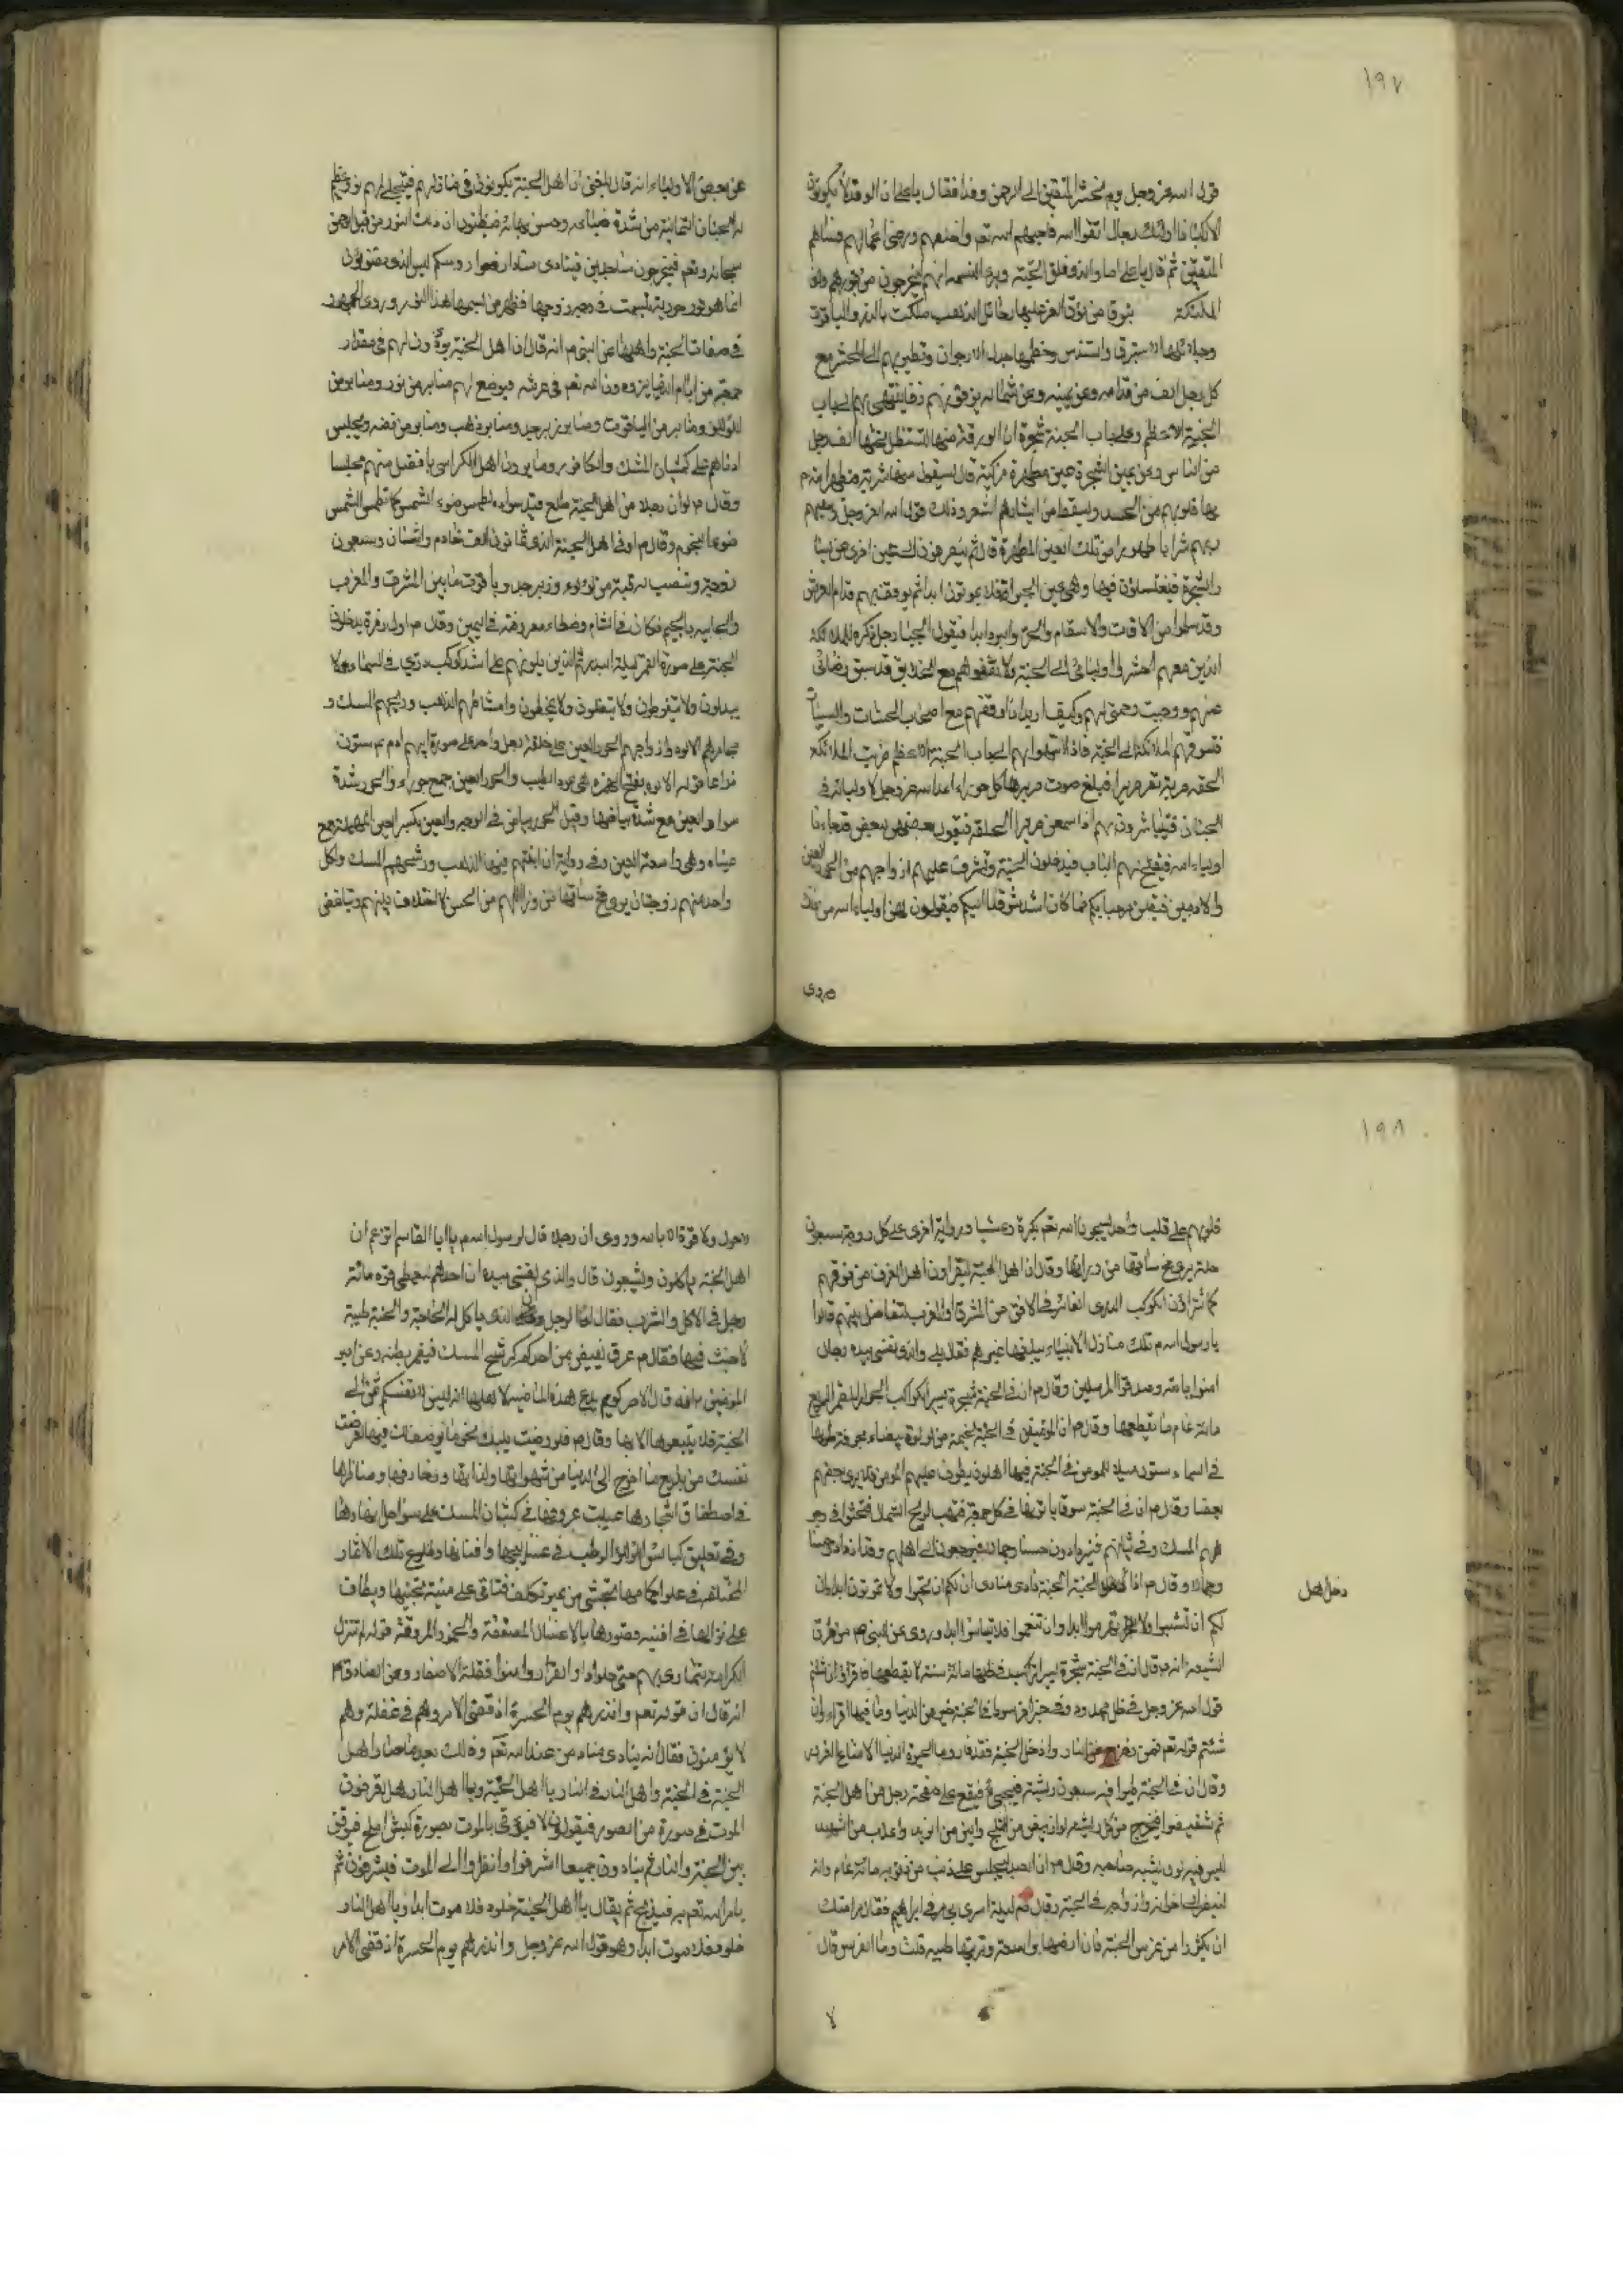 ١٩٧
قول الله عز وجل يوم نحشر المتقين الى الرحمن وفدا فقال يا علي ان الوفد لا يكونون
الا ركبانا اولئك رجال اتقوا الله فاحبهم الله تعم واختصهم ورضى اعمالهم فسماهم
المتقين ثم قال يا علي اما والذي فلق الحبة وبرء النسمه انهم ليخرجون من قبورهم وان
الملئكة بنوق من نوق العز عليها رحائل الذهب مكللة بالدر والياقوت
وجلائلها الاستبرق والسندس وخطمها جدل الارجوان وتطير بهم الى المحشر مع
كل رجل الف من قدامه وعن يمينه وعن شماله يزفونهم زفا ينتهى بهم الى باب
الجنة الاعظم وعلى باب الجنة شجرة ان الورقة منها لتستظل تحتها الف رجل
من الناس وعن يمين الشجرة عين مطهرة مزكية قال فيسقون منها شربة فيطهر الله
بها قلوبهم من الحسد ويسقط من ابشارهم الشعر وذلك قول الله عز وجل وسقيهم
ربهم شرابا طهورا من تلك العين المطهرة قال ثم ينصرفون الى عين اخرى عن يسا
ر الشجرة فيغتسلون فيها وهى عين الحيوة فلا يموتون ابدا ثم يوقف بهم قدام العرش
وقد سلموا من الافات والاسقام والحر والبرد ابدا فيقول الجبار جل ذكره للملائكة
الذين معهم احشروا اوليائى الى الجنة ولا تقفوهم مع الخلايق قد سبق رضائى
عنهم ووجبت رحمتى لهم وكيف اريد ان اوقفهم مع اصحاب الحسنات والسيئات
فتسوقهم الملائكة الى الجنة فاذا انتهوا بهم الى باب الجنة الاعظم ضربت الملائكة
الحلقه ضربة تصر صريرا فيبلغ صوت صريرها كل حوراء اعدها الله عز وجل لاوليائه فى
الجنان فيتباشرون بهم اذا سمعن صرير الحلقه فيقول بعضهن لبعض قد جاءنا
اولياء الله فيفتح لهم الباب فيدخلون الجنة وتشرف عليهم ازواجهم من الحور العين
والادميين فيقلن مرحبا بكم فما كان اشد شوقنا اليكم فيقولون لهن اولياء الله مثل ذلك
وروى
عن بعض الاولياء انه قال بلغنى ان اهل الجنة يكونون فى منازلهم فيتجلى لهم نور عظيم
له الجنان الثمانية من شدة ضيائه وحسن بهائه فيظنون ان ذلك النور من قبل الرحمن
سبحانه وتعم فيخرجون ساجدين فينادى مناد ارفعوا روسكم ليس الذي تظنون
انما هو نور حورية تبسمت فى وجه زوجها فظهر من تبسمها هذا النور وروى الجمهور
فى صفات الجنة واهلها عن النبى ص انه قال اذا اهل الجنة يؤذن لهم فى مقدار
جمعة من ايام الدنيا يزورون الله تعم فى عرشه فيوضع لهم منابر من نور ومنابر من
اللؤلؤ ومنابر من الياقوت ومنابر زبرجد ومنابر ذهب ومنابر من فضه ويجلس
ادناهم على كثبان المسك والكافور وما يرون اهل الكراسى بافضل منهم مجلسا
وقال ص لو ان رجلا من اهل الجنة طلع فبدا سواره لطمس ضوء الشمس كما تطمس الشمس
ضوء النجوم وقال ص ادنى اهل الجنة الذى ثمانون الف خادم واثنتان وسبعون
زوجة وتنصب له قبة من لؤلؤ وزبرجد وياقوت ما بين المشرق والمغرب
والجابيه بالجيم مكان فى الشام وصنعاء معروفة فى اليمن وقال ص اول زمرة يدخلون
الجنة على صورة القمر ليلة البدر ثم الذين يلونهم على اشد كوكب دري فى السماء لا
يبولون ولا يتغوطون ولا يتفلون ولا يمخطون وامشاطهم الذهب وريحهم المسك و
مجامرهم الالوه وازواجهم الحور العين على خلقة رجل واحد على صورة ابيهم ادم ع ستون
ذراعا قوله الالوه بفتح الهمزه هى عود الطيب والحور العين جمع حوراء والحور شدة
سواد العين مع شدة بياضها وقيل الحور بياض فى الوجه والعين بكسر العين المهملة جمع
عيناء وهى واسعة العين وفى رواية ان ابنيتهم فيها الذهب ورشحهم المسك ولكل
واحد منهم زوجتان يرى مخ ساقها من وراء اللحم من الحسن لا اختلاف بينهم ولا تباغض
١٩٨
قلوبهم على قلب واحد يسبحون الله تعم بكرة وعشيا وفى رواية اخرى على كل زوجة سبعون
حلة يرى مخ ساقها من ورائها وقال ان اهل الجنة ليتراون اهل الغرف من فوقهم
كما تتراؤن الكوكب الدرى الغابر فى الافق من المشرق او المغرب لتفاضل بينهم قالوا
يا رسول الله ص تلك منازل الانبياء يبلغها غيرهم فقال بلى والذى نفسى بيده رجال
امنوا بالله وصدقوا المرسلين وقال ص ان فى الجنة شجرة يسير الراكب الجواد المضمر السريع
مائة عام ما يقطعها وقال ص ان للمؤمن فى الجنة لخيمة من لؤلؤة بيضاء مجوفة طولها
فى السماء ستون ميلا للمومن فى الجنة فيها اهلون يطوف عليهم المؤمن فلا يرى بعضهم
بعضا وقال ص ان فى الجنة سوقا ياتونها فى كل جمعة فتهب الريح الشمال فتحثوا فى وجو
ههم المسك وفى ثيابهم فيزدادون حسنا وجمالا فيرجعون الى اهلهم وقد ازدادوا حسنا
وجمالا وقال ص اذا دخل اهل الجنة الجنة نادى منادى ان لكم ان تحيوا ولا تموتون ابدا وان
دخل اهل
لكم ان تشبوا ولا تهرموا ابدا وان تنعموا فلا تيأسوا ابدا وروى عن النبى ص من طرق
الشيعة انه ص قال ان فى الجنة شجرة يسير الراكب فى ظلها مائة سنة لا يقطعها فاقراؤا ان شئتم
قول الله عز وجل فى ظل ممدود وفى خبر اخر سوط فى الجنة خير من الدنيا وما فيها اقراء وان
شئتم قوله تعم فمن زحزح عن النار وادخل الجنة فقد فاز وما الحيوة الدنيا الا متاع الغرور
وقال ان فى الجنة طيرا فيه سبعون ريشة فيجىء فيقع على صفحة رجل من اهل الجنة
ثم ينتفض فيخرج من كل ريشه لون ابيض من الثلج والين من الزبد واعذب من الشهد
ليس فيه لون يشبه صاحبه وقال ص ان العبد ليحبس على ذنب من ذنوبه مائة عام وانه
لينظر الى اخوانه وازواجه فى الجنة وقال ص ليلة اسرى بى مر بى ابراهيم فقال مر امتك
ان يكثروا من غرس الجنة فان ارضها واسعة وتربتها طيبه قلت وما الغرس قال
لا
لا حول ولا قوة الا بالله وروى ان رجلا قال لرسول الله ص يا ابا القاسم تزعم ان
اهل الجنة ياكلون ويشربون قال والذي نفسى بيده ان احدهم ليعطى قوة مائة
رجل فى الاكل والشرب فقال الرجل فان الذى ياكل له الحاجة والجنة طيبة
لا خبث فيها فقال ص عرق يفيض من احدكم كرشح المسك فيضمر بطنه وعن امير
المؤمنين ع انه قال الا حر كريم يدع هذه اللماضه لاهلها انه ليس لانفسكم ثمن الى
الجنة فلا تبيعوها الا بها وقال ع فلو رميت ببصر قلبك نحو ما يوصف لك فيها لعزفت
نفسك من بدايع ما اخرج الى الدنيا من شهواتها ولذاتها وزخارفها ومناظرها
فى اصطفاق اشجارها غيبت عروقها فى كثبان المسك على سواحل انهارها
وفى تعليق كبائس اللؤلؤ الرطب فى عساليجها وافنانها وطلوع تلك الاثمار
المختلفة فى غلف اكمامها تجتنى من غير تكلف فتاتى على منية مجتنيها ويطاف
على نزالها فى افنيه قصورها بالاعسال المصفقة والخمور المروقة قوم لم تزل
الكرامة تتمادى بهم حتى حلوا دار القرار وامنوا نقلة الاسفار وعن الصادق ع
انه قال ان قوله تعم وانذرهم يوم الحسرة اذ قضى الامر وهم فى غفلة وهم
لا يؤمنون فقال انه ينادى مناد من عند الله تعم وذلك بعد ما صار اهل
الجنة فى الجنة واهل النار فى النار يا اهل الجنة ويا اهل النار هل تعرفون
الموت فى صورة من الصور فيقولون لا فيؤتى بالموت بصورة كبش املح فيوقف
بين الجنة والنار ثم ينادون جميعا اشرفوا وانظروا الى الموت فيشرفون ثم
يامر الله تعم به فيذبح ثم يقال يا اهل الجنة خلود فلا موت ابدا ويا اهل النار
خلود فلا موت ابدا وهو قول الله عز وجل وانذرهم يوم الحسرة اذ قضى الامر